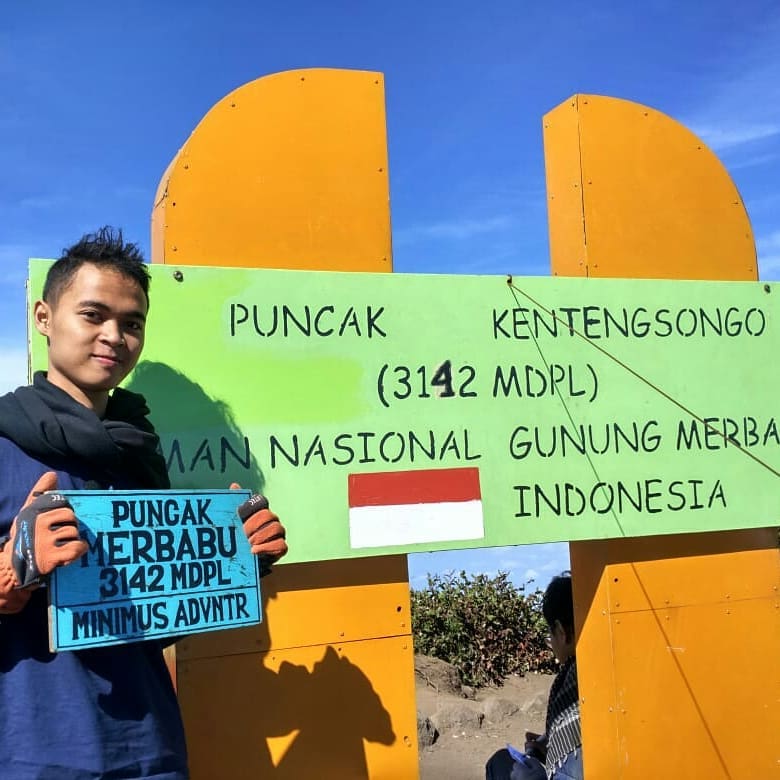 PUNCAK KENTENGSONGO
(3142 MDPL)
MAN NASIONAL GUNUNG MERBA
INDONESIA
PUNCAK
MERBABU
3142 MDPL
MINIMUS ADVNTR